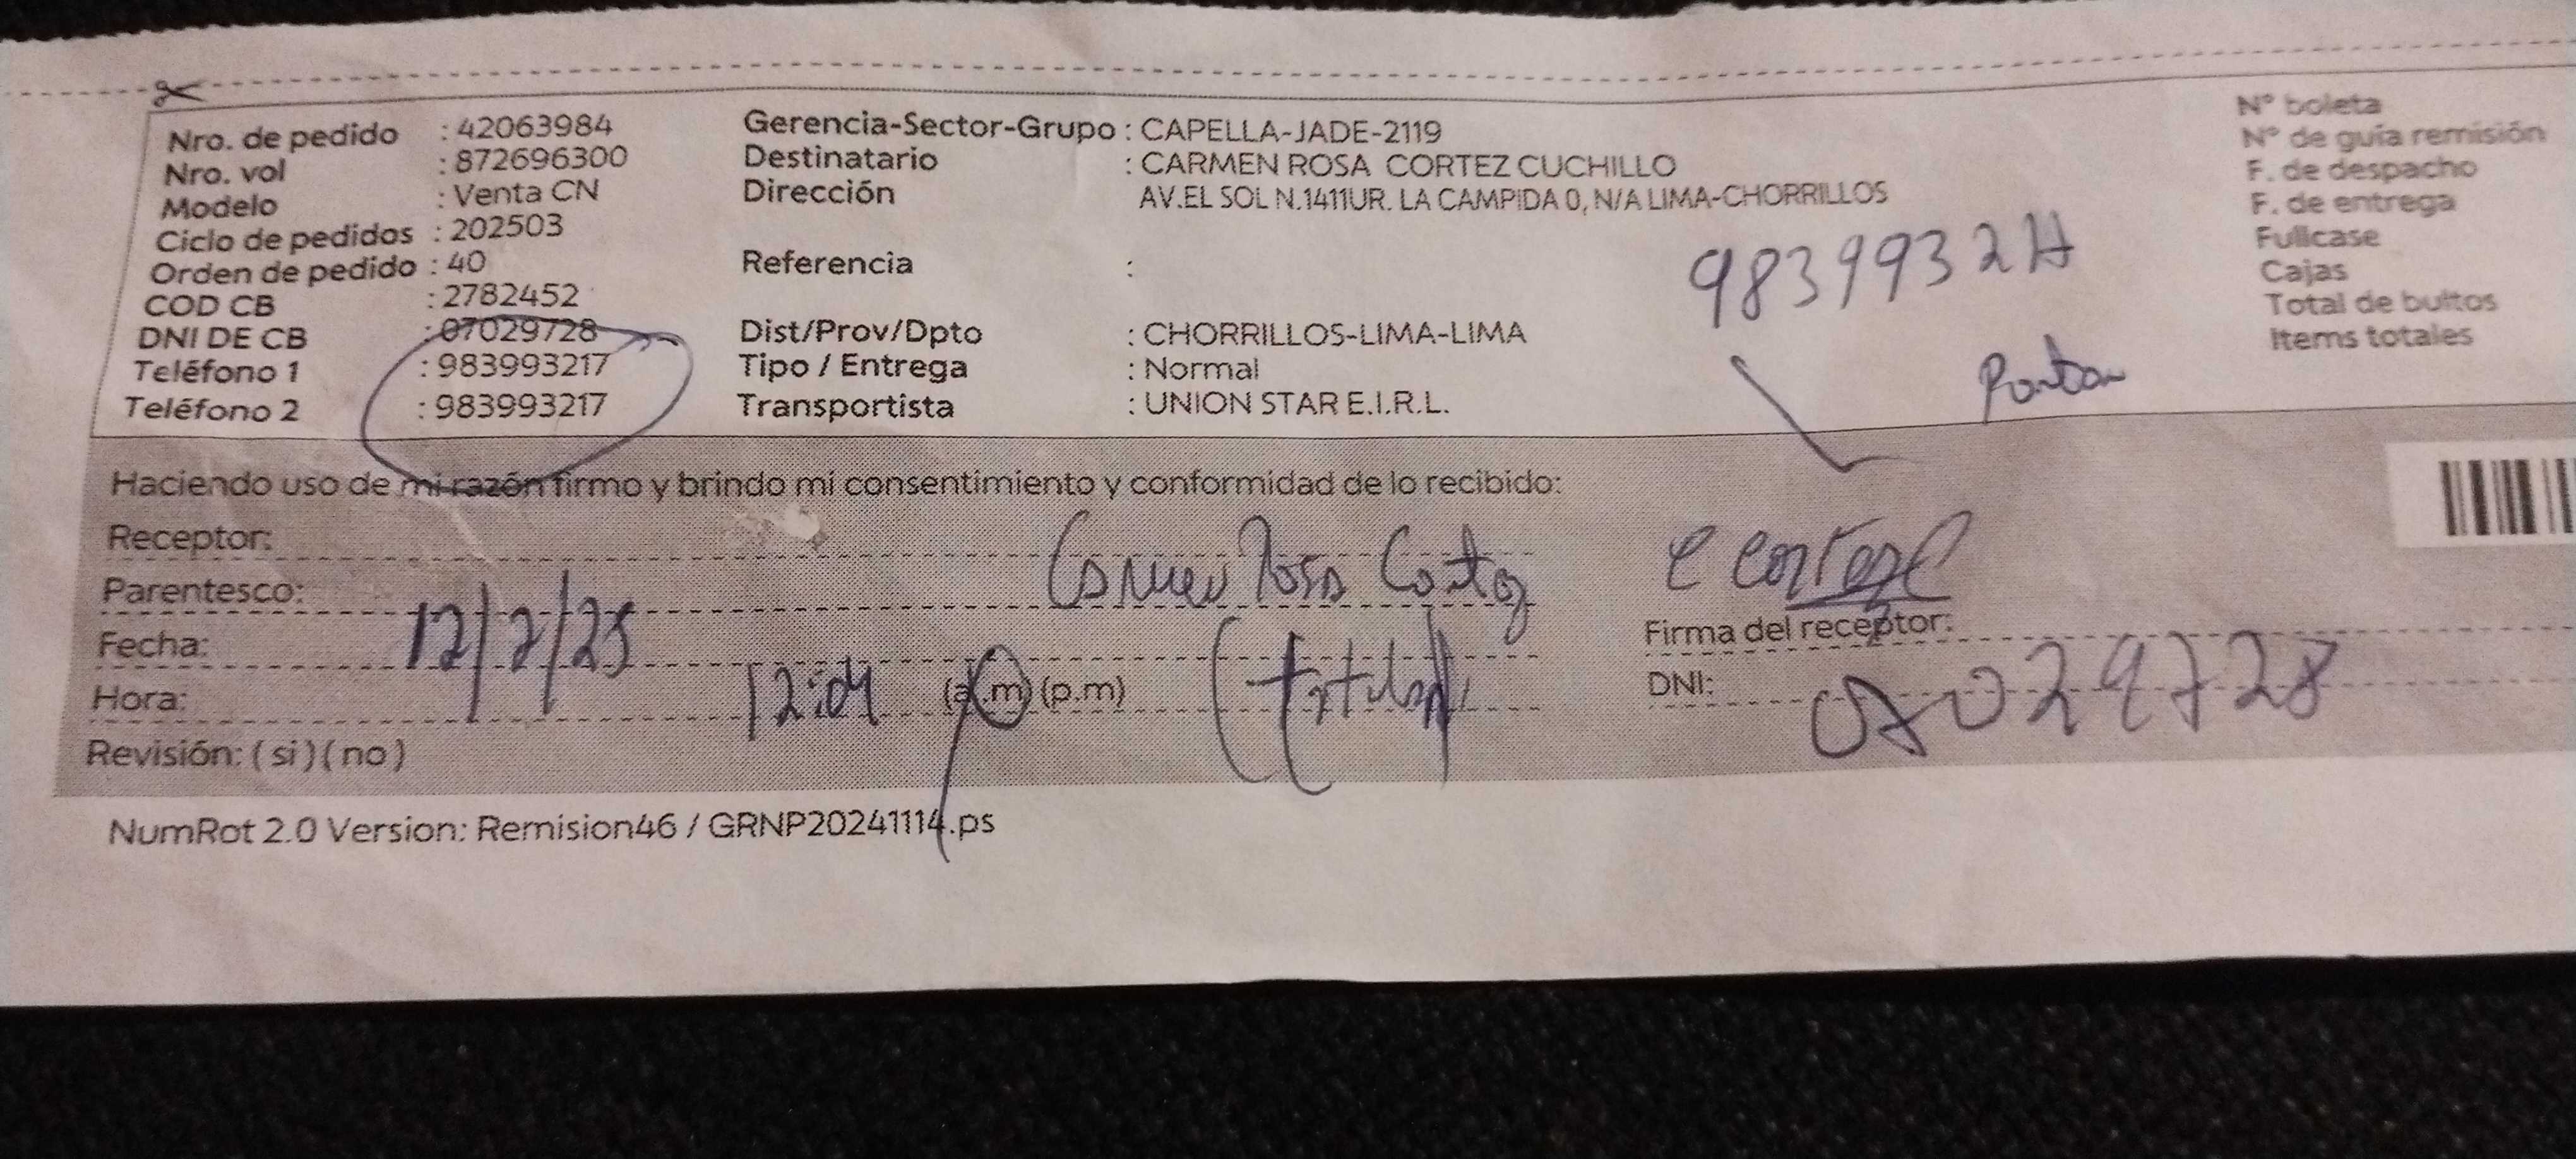 Nro. de pedido : 42063984
Nro. vol : 872696300
Modelo : Venta CN
Ciclo de pedidos : 202503
Orden de pedido : 40
COD CB : 2782452
DNI DE CB : 07029728
Teléfono 1 : 983993217
Teléfono 2 : 983993217
Gerencia-Sector-Grupo : CAPELLA-JADE-2119
Destinatario : CARMEN ROSA CORTEZ CUCHILLO
Dirección AV.EL SOL N.1411UR. LA CAMPIDA 0, N/A LIMA-CHORRILLOS
Referencia :
Dist/Prov/Dpto : CHORRILLOS-LIMA-LIMA
Tipo / Entrega : Normal
Transportista : UNION STAR E.I.R.L.
98399321
N° boleta
N° de guía remisión
F. de despacho
F. de entrega
Fullcase
Cajas
Total de bultos
Items totales
Haciendo uso de mi razón firmo y brindo mi consentimiento y conformidad de lo recibido:
Receptor:
Carmen Rosa Cortez
Parentesco:
(titular)
Fecha: 12/2/25
Hora: 12:04 (a.m) (p.m)
Revisión: ( si ) ( no )
C Cortez C
Firma del receptor:
DNI: 07029728
NumRot 2.0 Version: Remision46 / GRNP20241114.ps